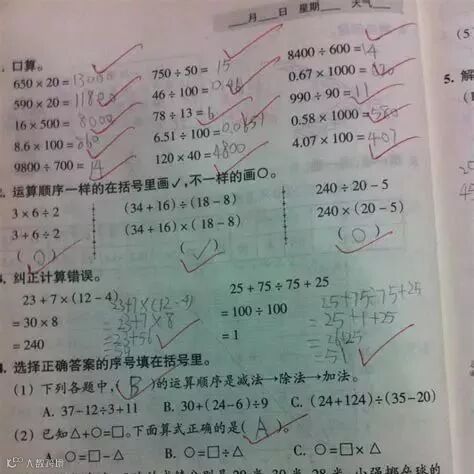 月 日 星期 天气
口算。
650 × 20 = 13000 750 ÷ 50 = 15 8400 ÷ 600 = 14
590 × 20 = 11800 46 ÷ 100 = 0.46 0.67 × 1000 =
16 × 500 = 8000 78 ÷ 13 = 6 990 ÷ 90 = 11
8.6 × 100 = 860 6.51 ÷ 100 = 0.0651 0.58 × 1000 = 580
9800 ÷ 700 = 14 120 × 40 = 4800 4.07 × 100 = 407
运算顺序一样的在括号里画✓,不一样的画○。
3 × 6 ÷ 2 (34 + 16) ÷ (18 - 8) 240 ÷ 20 - 5
3 + 6 ÷ 2 (34 + 16) × (18 - 8) 240 × (20 - 5)
(○) (✓) (○)
纠正计算错误。
23 + 7 × (12 - 4) 23+7×(12-4) 25 + 75 ÷ 75 + 25 25+75÷75+25
= 30 × 8 =23+7×8 = 100 ÷ 100 =25+1+25
= 240 =23+56 = 1 =26+25
=51
选择正确答案的序号填在括号里。
(1) 下列各题中,( B )的运算顺序是减法→除法→加法。
A. 37-12÷3+11 B. 30+(24-6)÷9 C. (24+124)÷(35-20)
(2) 已知△+○=□,下面算式正确的是( A )。
A. ○=□-△ B. ○=□+△ C. ○=□×△
5.